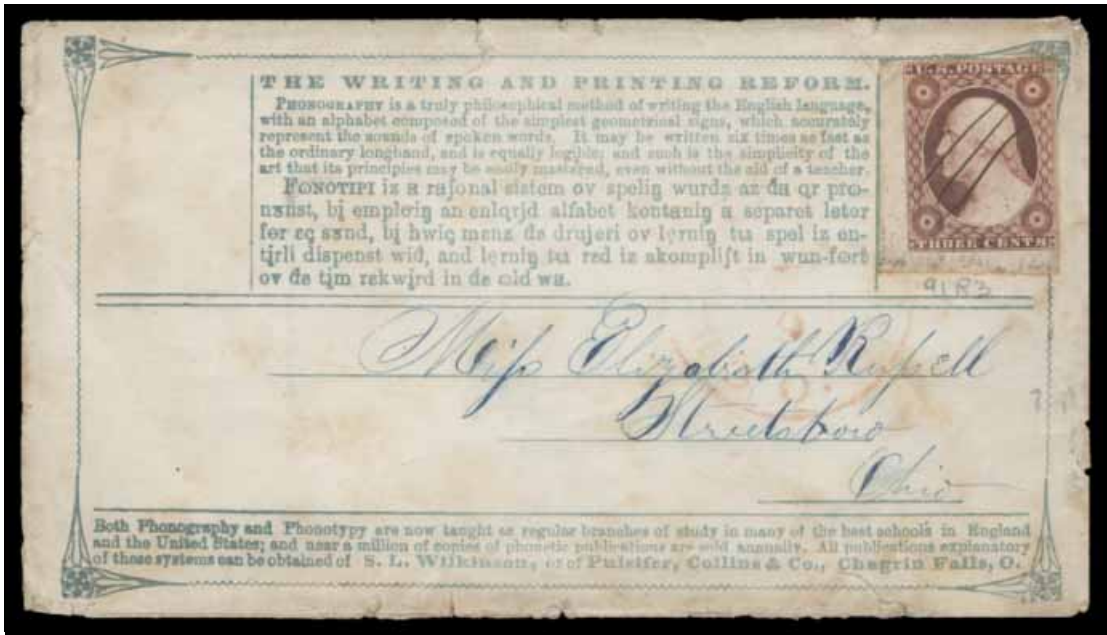 THE WRITING AND PRINTING REFORM.
PHONOGRAPHY is a truly philosophical method of writing the English language,
with an alphabet composed of the simplest geometrical signs, which accurately
represent the sounds of spoken words. It may be written six times as fast as
the ordinary longhand, and is equally legible; and such is the simplicity of the
art that its principles may be easily mastered, even without the aid of a teacher.
FONOTIPI iz a raʃonal sistem ov speliŋ wurdz az ꞇa qr pro-
nɤnst, bį emploiŋ an enlqrjd alfabet kontaniŋ a separet leter
for eç sɤnd, bį hwiç menz ꞇe drujeri ov lɛrniŋ tɯ spel iz en-
tįrli dispenst wiꞇ, and lɛrniŋ tɯ red iz akompliʃt in wun-fort
ov ꞇe tįm rekwįrd in ꞇe old wa.
U.S. POSTAGE
THREE CENTS
9183
Miss Elizabeth Russell
Streetsboro
Ohio
Both Phonography and Phonotypy are now taught as regular branches of study in many of the best schools in England
and the United States; and near a million of copies of phonetic publications are sold annually. All publications explanatory
of these systems can be obtained of S. L. Wilkinson, or of Pulsifer, Collins & Co., Chagrin Falls, O.